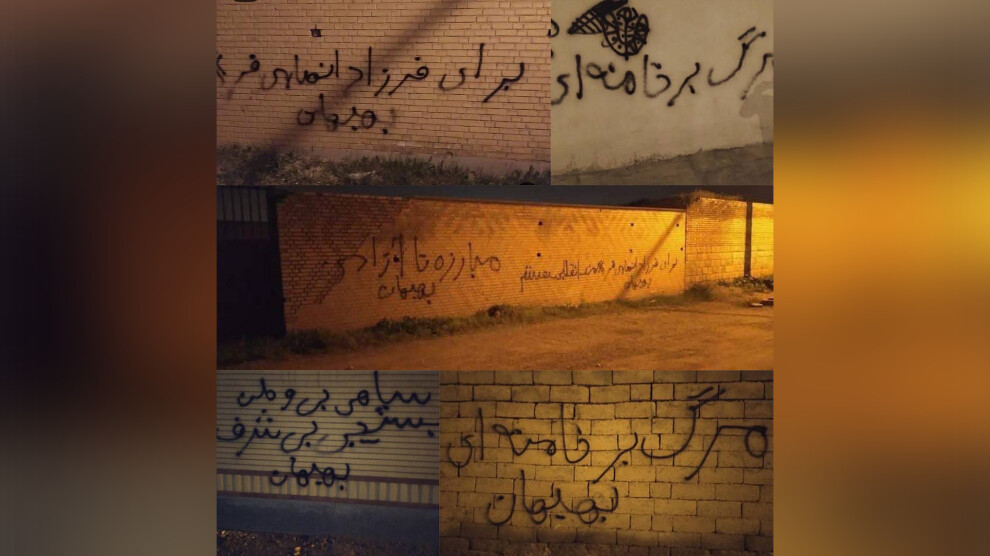 برای فرزاد انصاری فر
بهبهان
مرگ بر خامنه ای
مبارزه تا آزادی
بهبهان
برای فرزاد انصاری فر
بهبهان
سپاهی بی وطن
بسیجی بی شرف
بهبهان
مرگ بر خامنه ای
بهبهان